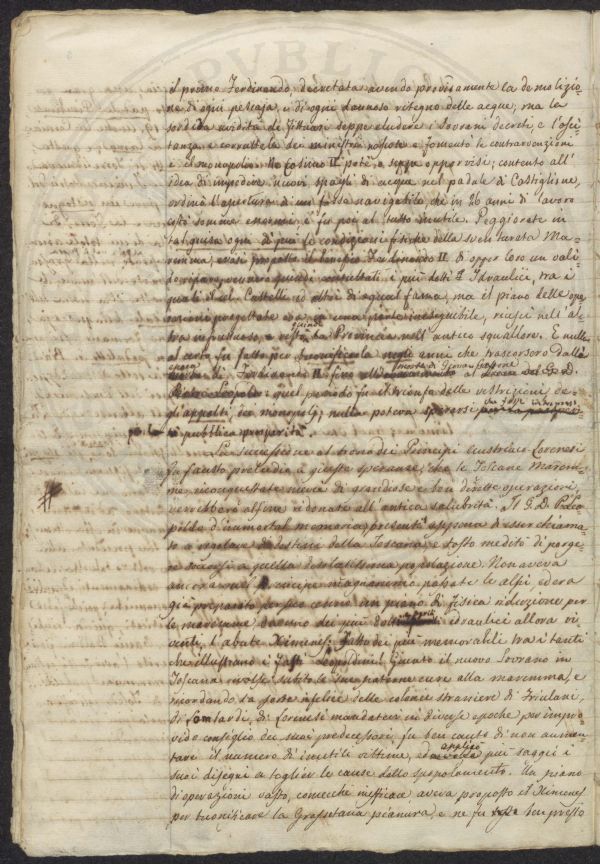 PVBLI
il primo Ferdinando, decretata avendo provvisamente la demolizio-
ne di ogni pescaja, e d'ogni dannoso ritegno delle acque; ma la
sordida avidità de' fittuari seppe eludere i Sovrani decreti e l'osci-
tanza e corruttela dei ministri e fomentò le contravvenzioni
e il monopolio. Ne Cosimo II potè o seppe opporvisi; contento all'
idea di impedire nuovi spagli di acque nel padule di Castiglione,
ordinò l'apertura di un fosso navigabile, che in 26 anni di lavoro
costò somme enormi e fu poi al tutto inutile. Peggiorate in
tal guisa ogni dì più le condizioni fisiche della sventurata Ma-
remma, erasi proposto il benefico Ferdinando II di opper loro un vali-
do riparo; vennero quindi consultati i più dotti Idraulici, tra i
quali il Castelli ed altri di egual fama, ma il piano delle ope-
razioni progettate era in una parte ineseguibile, riuscì nell'al-
tra infruttuoso, e restò
quindi
la Provincia nell'antico squallore. E nulla
al certo fu fatto per bonificarla negli anni che trascorsero dalla
epoca
di Ferdinando II fino
morte di Gian Gastone
al
Pietro Leopoldo: quel periodo fu il trionfo delle restrizioni, de-
gli appalti, dei monopolj; nulla poteva sperarsi
pubblica prosperità.
La successione al trono dei Principi Austriaco-Lorenesi
fu fausto preludio a giuste speranze, che le Toscane Marem-
me riconquistate mercè di grandiose e ben dirette operazioni,
verrebbero alfine ridonate all'antica salubrità. Il G. D. P. Leo-
poldo d'immortal memoria, presentì appena di esser chiama-
to a regolare i destini della Toscana, e tosto meditò di porge-
re soccorsi a quella desolatissima popolazione. Non aveva
ancora quel Principe magnanimo passate le alpi, ed era
già preparato per suo cenno un piano di fisica riduzione per
le maremme da uno dei più dotti idraulici allora vi-
venti, l'abate Ximenes: fatto dei più memorabili tra i tanti
che illustrano i Fasti Leopoldini. Giunto il nuovo Sovrano in
Toscana rivolse subito le sue paterne cure alla maremma, e
ricordando la sorte infelice delle colonie straniere di Friulani,
di Lombardi, di Lorenesi mandatevi in diverse epoche per improv-
vido consiglio dei suoi predecessori, fu ben cauto di non aumen-
tare il numero di inutili vittime, ed
applicò
più saggi i
suoi disegni a toglier le cause dello spopolamento. Un piano
di operazioni vasto, comecchè inefficace aveva proposto il Ximenes
per bonificare la Grossetana pianura, e ne fu ben presto